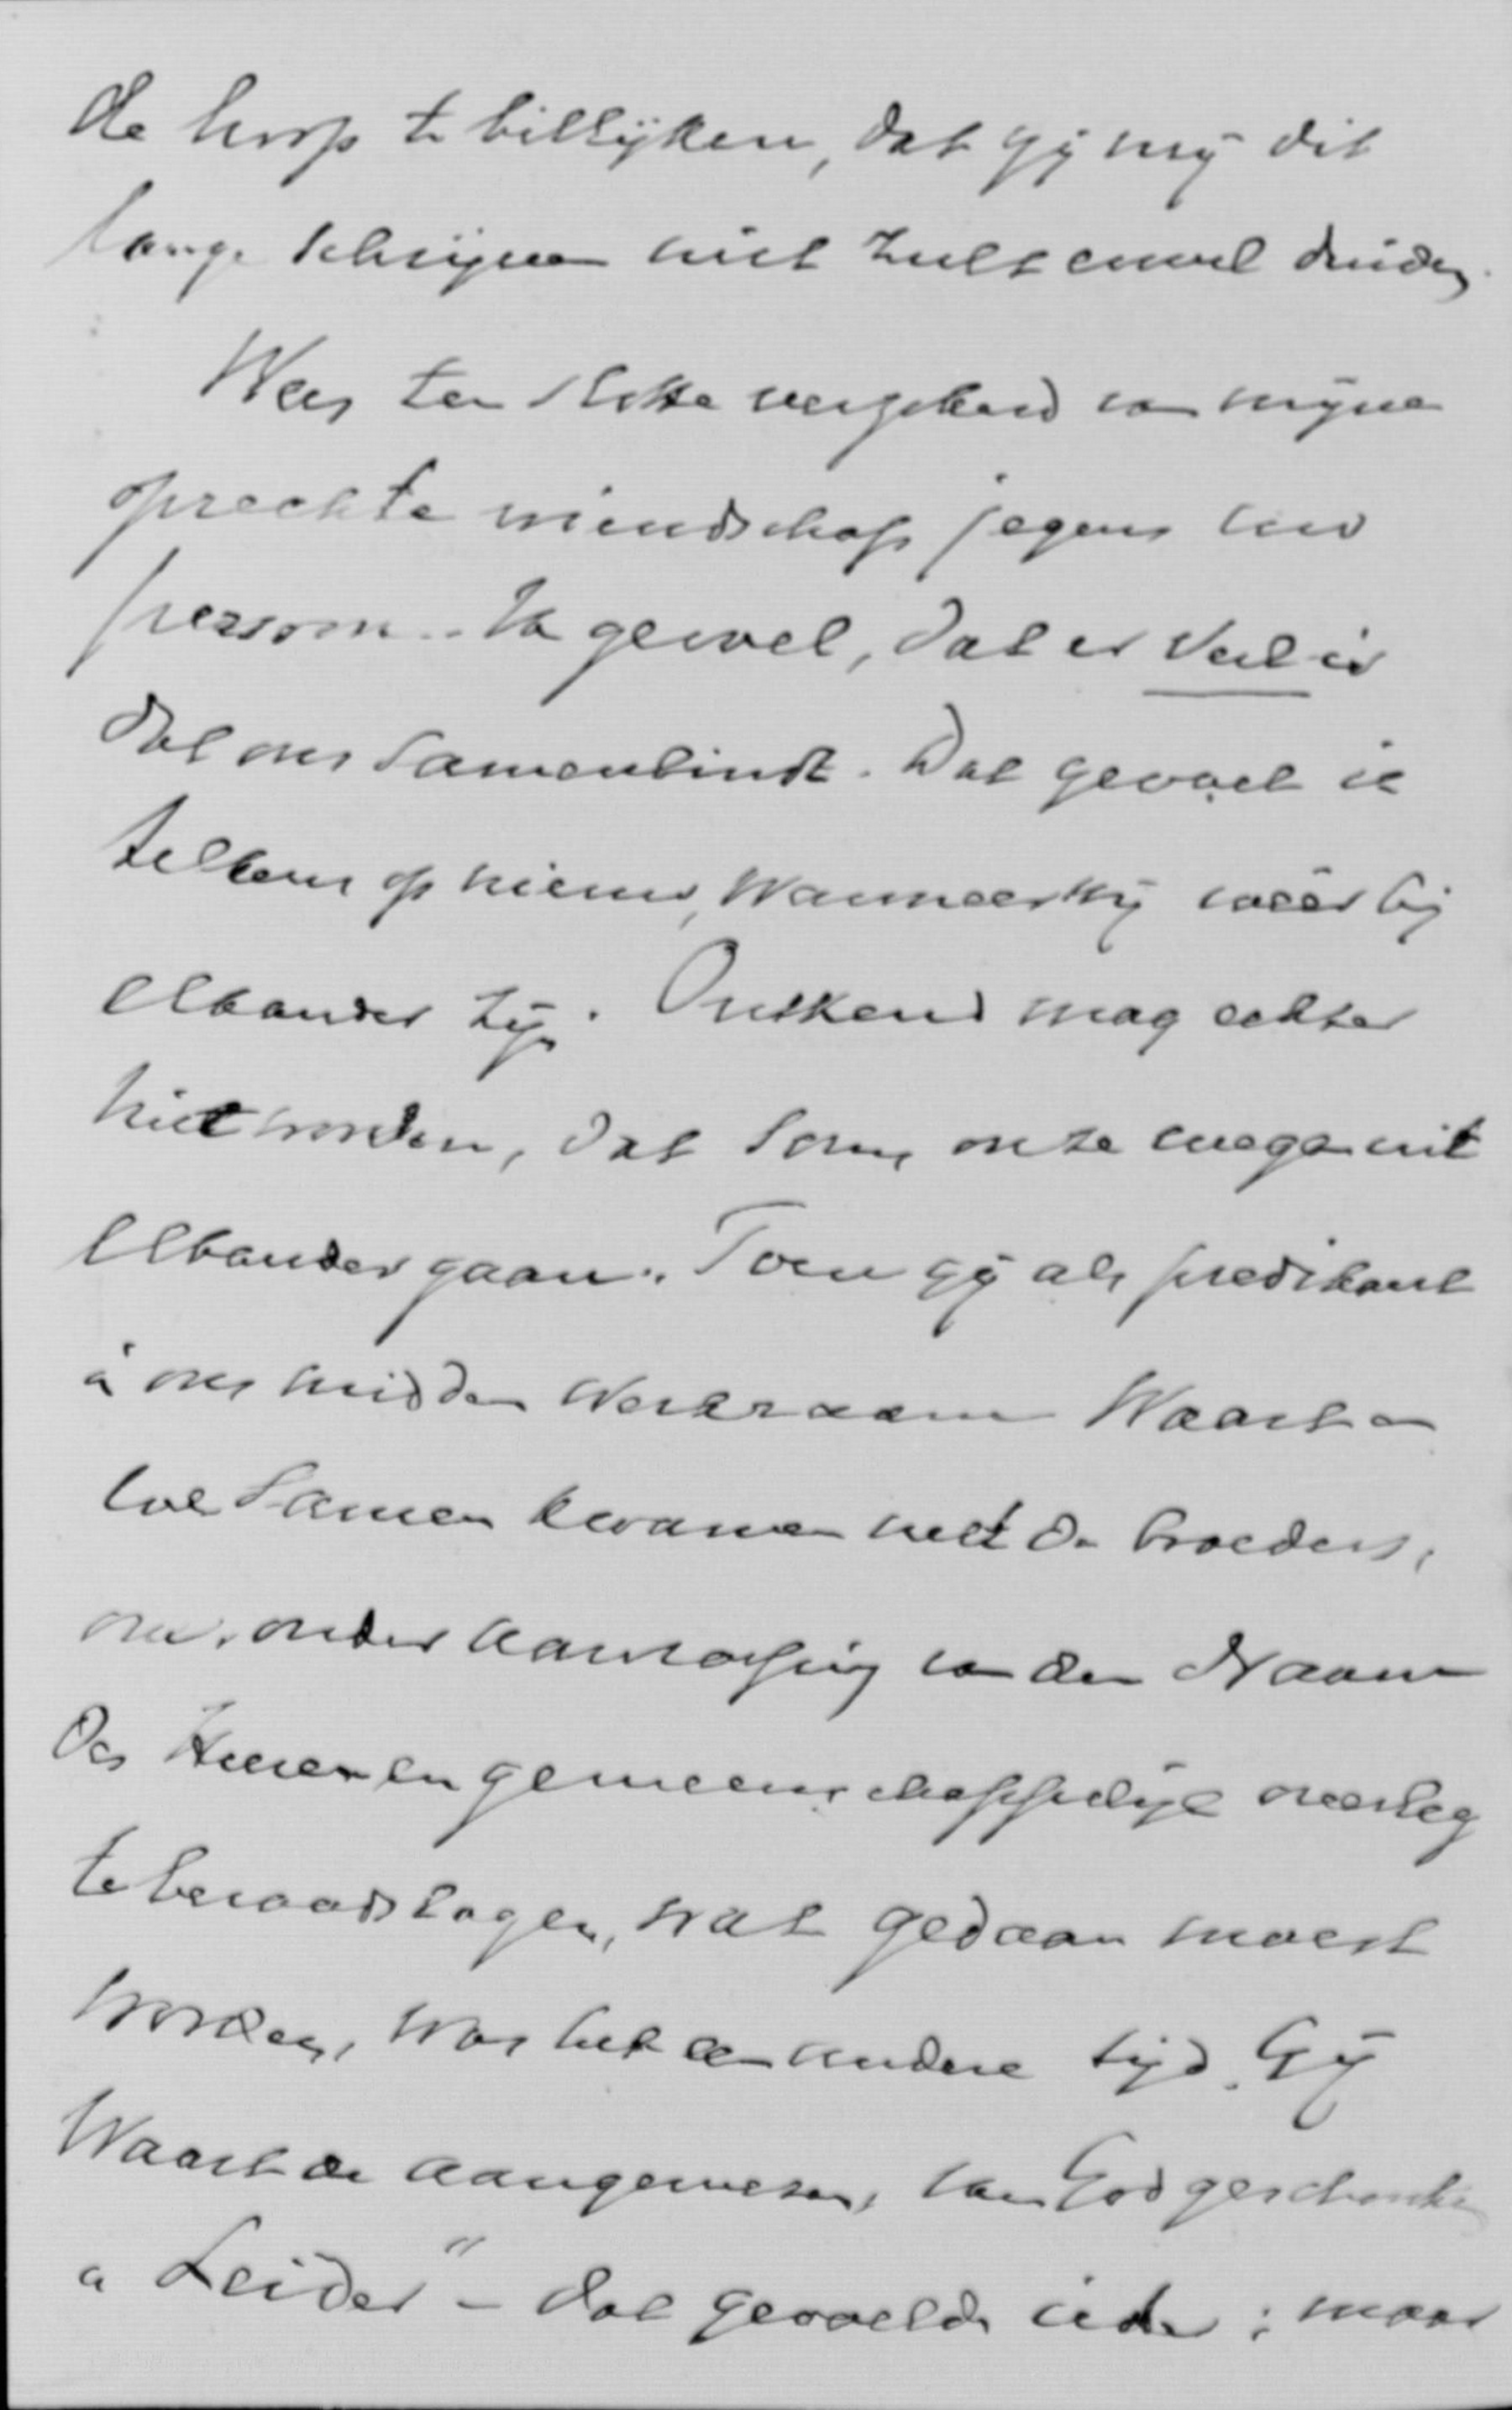 de hoop te billijken, dat gij mij dit
lange schrijven niet zult euvel duiden.
Wees ten slotte verzekerd van mijne
oprechte vriendschap jegens uw
persoon. Ik gevoel, dat er veel is
dat ons samenbindt. Dat gevoel ik
telkens op nieuw, wanneer wij weêr bij
elkander zijn. Ontkend mag echter
niet worden, dat soms onze wegen uit
elkander gaan. Toen gij als predikant
in ons midden werkzaam waart en
we samen kwamen met de broeders,
om, onder aanroeping van den Naam
des Heeren en gemeenschappelijk overleg
te beraadslagen, wat gedaan moest
worden, was het een andere tijd. Gij
waart de aangewezen, van God geschonken
"Leider" - dat gevoelde ieder; maar